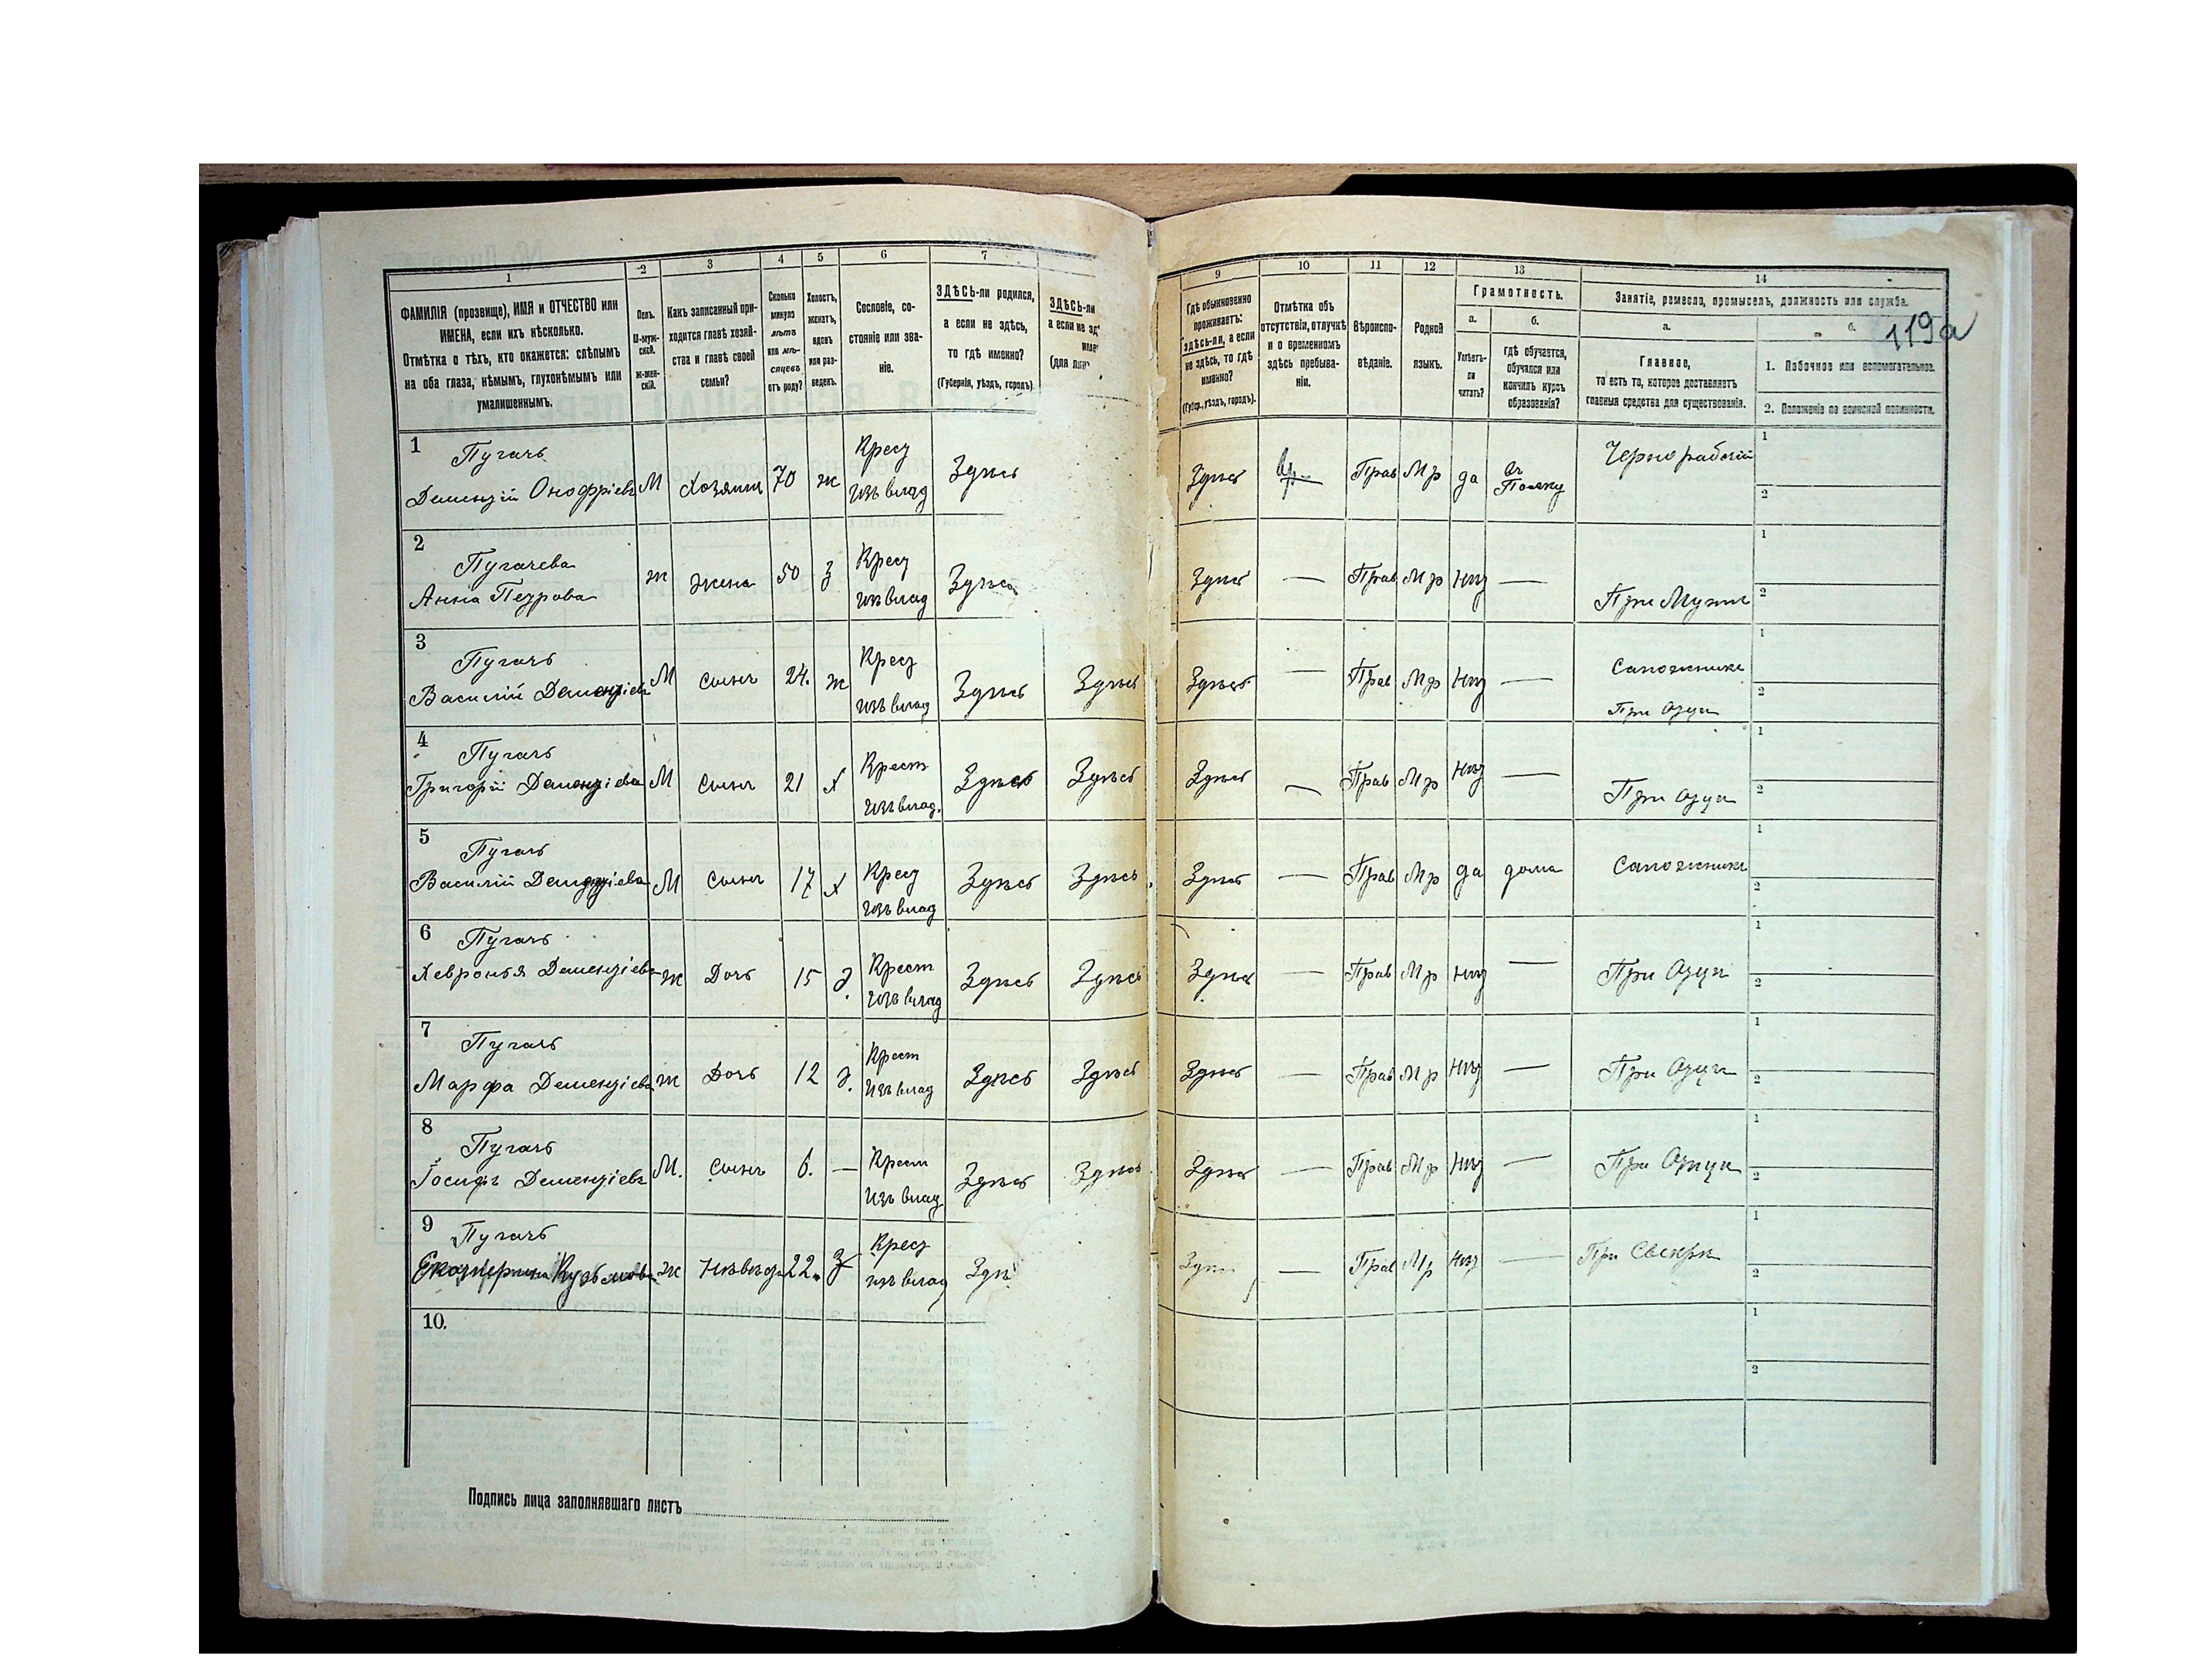 1 2 3 4 5 6 7
ФАМИЛІЯ (прозвище), ИМЯ и ОТЧЕСТВО или ИМЕНА, если ихъ нѣсколько.
Отмѣтка о тѣхъ, кто окажется: слѣпымъ на оба глаза, нѣмымъ, глухонѣмымъ или умалишеннымъ.
Полъ. М-мужской. Ж-женскій.
Какъ записанный приходится главѣ хозяйства и главѣ своей семьи?
Сколько минуло лѣтъ или мѣсяцевъ отъ роду?
Холостъ, женатъ, вдовъ или разведенъ.
Сословіе, состояніе или званіе.
ЗДѢСЬ-ли родился, а если не здѣсь, то гдѣ именно?
(Губернія, уѣздъ, городъ)
ЗДѢСЬ-ли
а если не
9 10 11 12 13 14
Гдѣ обыкновенно проживаетъ: здѣсь-ли, а если не здѣсь, то гдѣ именно?
(Губер., уѣздъ, городъ).
Отмѣтка объ отсутствіи, отлучкѣ и о временномъ здѣсь пребываніи.
Вѣроисповѣданіе.
Родной языкъ.
Грамотность.
а. Умѣетъ-ли читать?
б. гдѣ обучается, обучался или кончилъ курсъ образованія?
Занятіе, ремесло, промыселъ, должность или служба.
а. Главное,
то есть то, которое доставляетъ главныя средства для существованія.
б.
119а
1. Побочное или вспомогательное.
2. Положеніе по воинской повинности.
1 Пугачъ Крест Чернорабочій 1
Онофріевъ М Хозяинъ 70 ж изъ влад Здѣсь Здѣсь Прав Мр да 2
2 Пугачева Крест 1
Анна Петрова ж жена 50 З изъ влад Здѣсь Здѣсь — Прав Мр нѣт — При Мужѣ 2
3 Пугачъ Крест Сапожникъ 1
Василій М сынъ 24. ж изъ влад Здѣсь Здѣсь Здѣсь — Прав Мр нѣт — При Отцѣ 2
4 Пугачъ Крест 1
Григорій М сынъ 21 х изъ влад. Здѣсь Здѣсь Здѣсь — Прав Мр нѣт — При Отцѣ 2
5 Пугачъ Крест Сапожникъ 1
Василій М сынъ 17 х изъ влад Здѣсь Здѣсь Здѣсь — Прав Мр да дома 2
6 Пугачъ Крест 1
Хевронья ж Дочь 15 д. изъ влад Здѣсь Здѣсь Здѣсь — Прав Мр нѣт — При Отцѣ 2
7 Пугачъ Крест 1
Марфа ж Дочь 12 д. изъ влад Здѣсь Здѣсь Здѣсь — Прав Мр нѣт — При Отцѣ 2
8 Пугачъ Крест 1
Іосифъ М. сынъ 6. — изъ влад Здѣсь Здѣсь Здѣсь — Прав Мр нѣт — При Отцѣ 2
9 Пугачъ Крест 1
Екатерина Кузьмова ж 22. З изъ влад — Прав Мр нѣт — При Свекрѣ 2
10. 1
2
Подпись лица заполнявшаго листъ